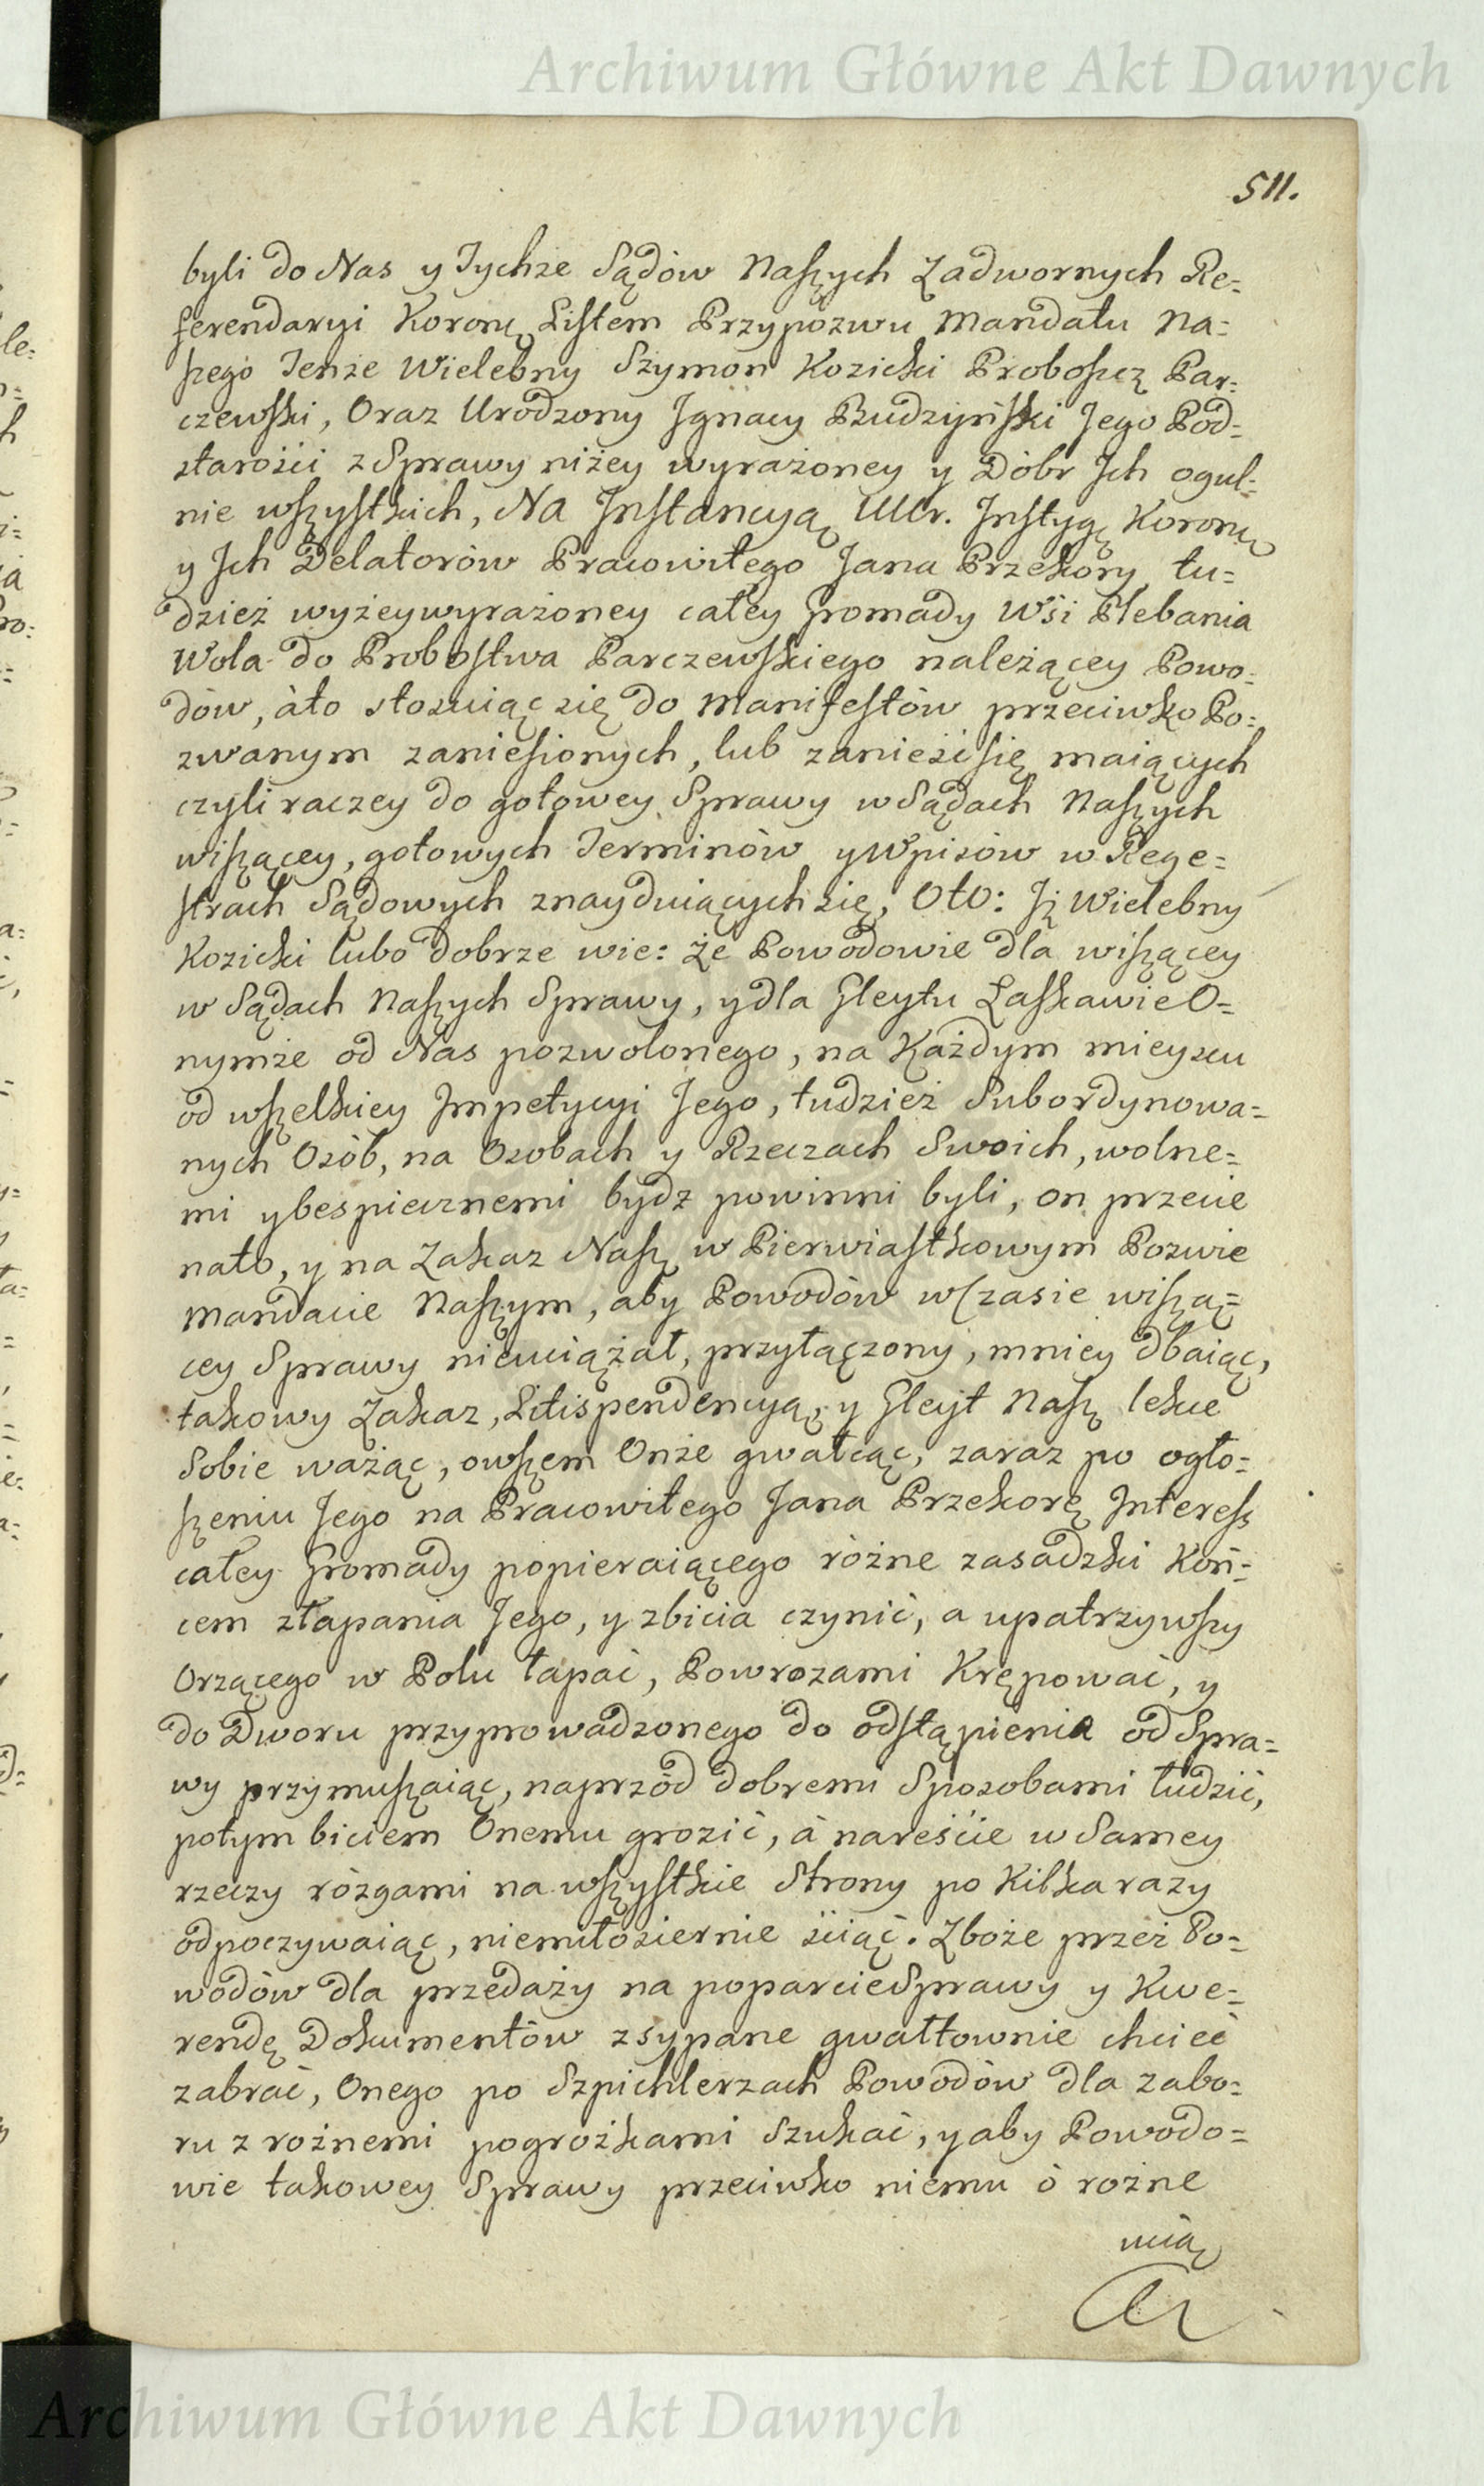 Archiwum Główne Akt Dawnych
511.
byli do Nas y Tychże Sądów Naszych Zadwornych Re=
ferendaryi Koronę Listem Przypozwu Mandatu Na=
szego Tenże Wielebny Szymon Kozicki Proboszcz Par=
czewski, Oraz Urodzony Jgnacy Budzyński Jego Pod=
starości z Sprawy niżey wyrażoney y Dóbr Jch ogul=
nie wszystkich, Na Jnstancyą Ur. Jnstygę Koronę
y Jch Delatorów Pracowitego Jana Przekory tu=
dzież wyżeywyrażoney całey Gromady Wsi Plebania
Wola do Probostwa Parczewskiego należącey Powo=
dów, áto stosuiąc się do Manifestów przeciwko Po=
zwanym zaniesionych, lub zanieść się maiących
czyli raczey do gotowey Sprawy w Sądach Naszych
wiszącey, gotowych Terminów y Wpisów w Rege=
strach Sądowych znayduiących się, Oto: Jż Wielebny
Kozicki lubo dobrze wie: że Powodowie dla wiszącey
w Sądach Naszych Sprawy, y dla Gleytu Łaskawie O=
nymże od Nas pozwolonego, na Każdym mieyscu
od wszelkiey Jmpetycyi Jego, tudzież Subordynowa=
nych Osób, na Osobach y Rzeczach Swoich, wolne=
mi y bespiecznemi bydz powinni byli, on przecie
nato, y na Zakaz Nasz w Pierwiastkowym Pozwie
Mandacie Naszym, aby Powodów w Czasie wiszą=
cey Sprawy nieuciążał, przyłączony, mniey dbaiąc,
takowy Zakaz, Litispendencyą, y Gleyt Nasz lekce
Sobie ważąc, owszem Onże gwałcąc, zaraz po ogło=
szeniu Jego na Pracowitego Jana Przekorę Jnteress
całey Gromady popieraiącego różne zasadzki Koń=
cem złapania Jego, y zbicia czynić, a upatrzywszy
Orzącego w Polu łapać, Powrozami Krępować, y
do Dworu przyprowadzonego do odstąpienia od Spra=
wy przymuszaiąc, naprzód dobremi Sposobami łudzić,
potym biciem Onemu grozić, á nareście w Samey
rzeczy rózgami na wszystkie Strony po Kilka razy
odpoczywaiąc, niemiłosiernie ściąć. Zboże przez Po=
wodów dla przedaży na poparcie Sprawy y Kwe=
rendę Dokumentów zsypane gwałtownie chcieć
zabrać, Onego po Szpichlerzach Powodów dla zabo=
ru z rożnemi pogrożkami Szukać, y aby Powodo=
wie takowey Sprawy przeciwko niemu ó rożne
uciąż
Archiwum Główne Akt Dawnych